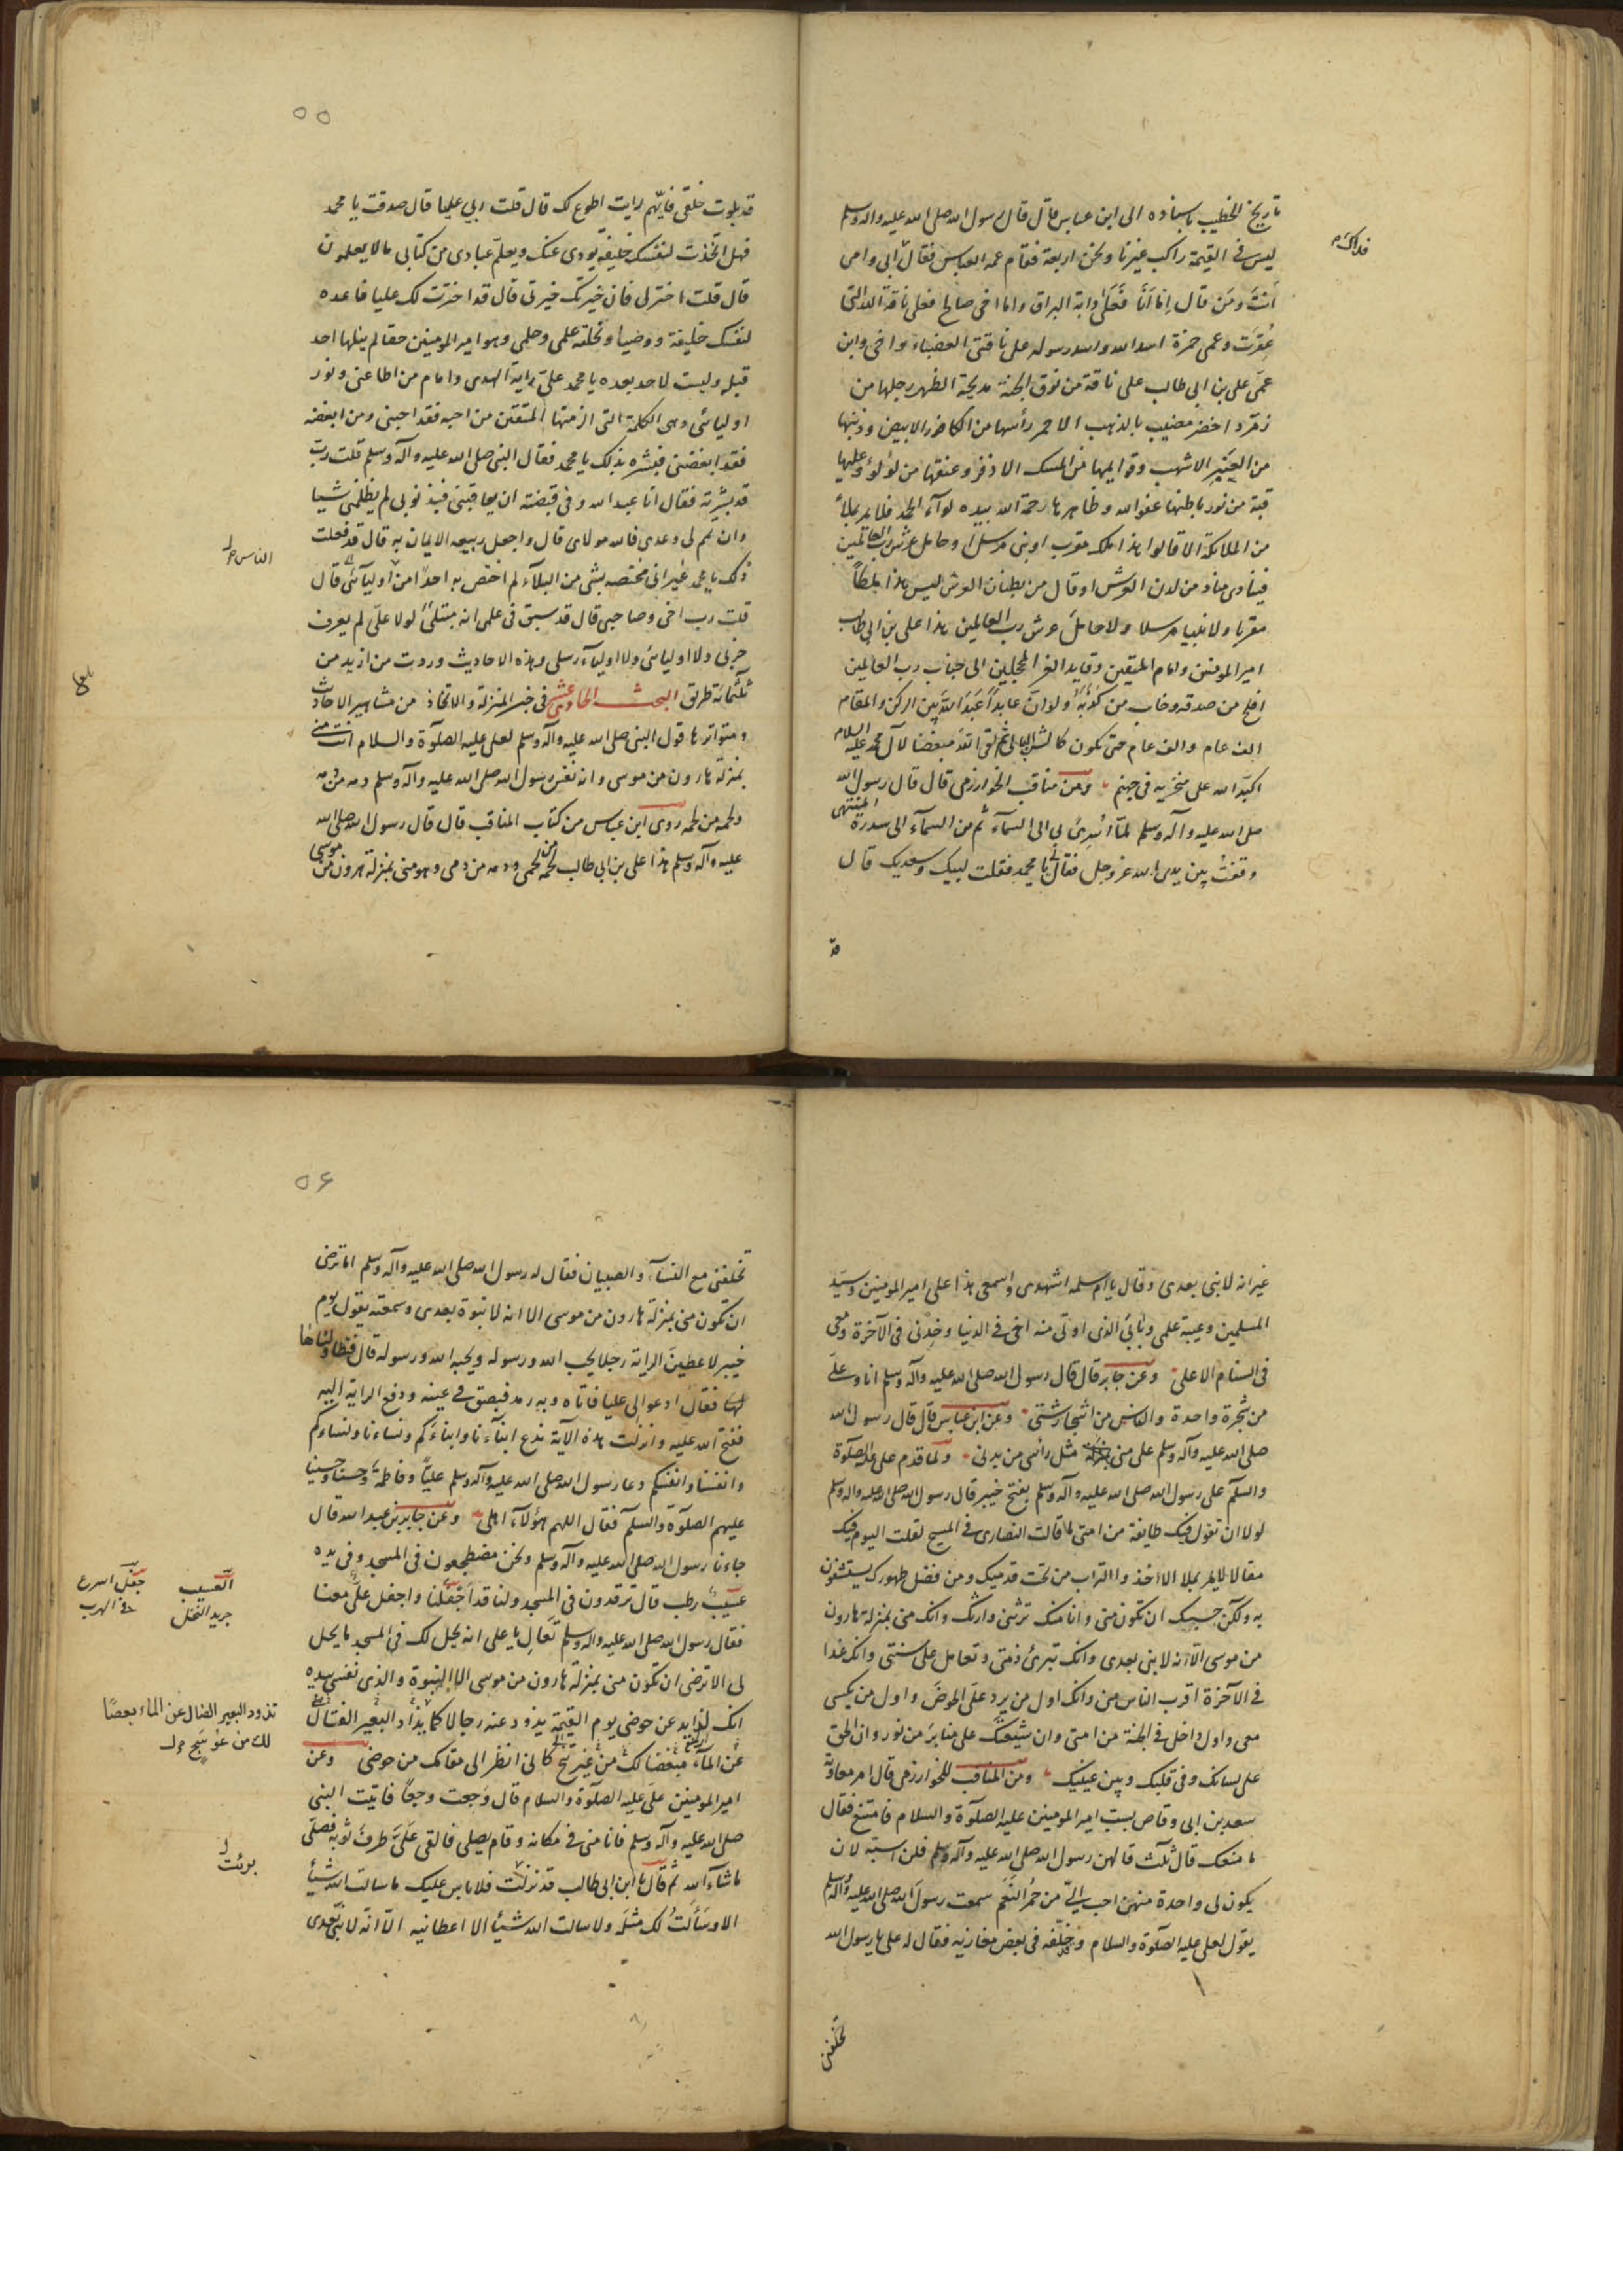 تاريخ الخطيب باسناده الى ابن عباس قال قال رسول الله صلى الله عليه واله وسلم
ليس فى القيمة راكب غيرنا ونحن اربعة فقام عمه العباس فقال ابى وامى
فداك
اَنتَ ومَن قال اِنّما اَنا فَعَلىٰ دابة البراق واما اخى صالح فعلى ناقة الله التى
عُقِرَت وعمى حمزة اسد الله واسد رسوله على ناقتى العضباء واخى وابن
عمى على بن ابى طالب على ناقة من نوق الجنة مدبجة الظهر رجلها من
زمرد اخضر مضبب بالذهب الاحمر رأسها من الكافور الابيض وذنبها
من العنبر الاشهب وقوايمها من المسك الاذفر وعنقها من لؤلؤ وعليها
قبة من نور باطنها عفو الله وظاهرها رحمة الله بيده لوآء الحمد فلا يمر بملأ
من الملائكة الا قالوا هذا ملك مقرب او نبى مرسل او حامل عرش رب العالمين
فينادى مناد من لدن العرش او قال من بطنان العرش ليس هذا ملكاً
مقربا ولا نبيا مرسلا ولا حامل عرش رب العالمين هذا على بن ابى طالب
امير المومنين وامام المتقين وقايد الغر المحجلين الى جناب رب العالمين
افلح من صدقه وخاب من كذبه ولو ان عابداً عَبَد الله بين الركن والمقام
الف عام والف عام حتى يكون كالشن البالى ثم لقى الله مبغضا لآل محمد عليه السلام
اكبّه الله على منخريه فى جهنم ومن مناقب الخوارزمى قال قال رسول الله
صلى الله عليه وآله وسلم لمّا اُسْرِىَ بى الى السمآء ثم من السمآء الى سدرة المنتهى
وقفت بين يدى الله عز وجل فقال لى يا محمد فقلت لبيك وسعديك قال
قد
٥٥
قد بلوت خلقى فايّهم رايت اطوع لك قال قلت ربى عليا قال صدقت يا محمد
فهل اتّخذت لنفسك خليفة يودى عنك ويعلّم عبادى من كتابى ما لا يعلمون
قال قلت اختر لى فان خيرتك خيرتى قال قد اخترت لك عليا فاتخده
لنفسك خليفة ووصيا ونحلته علمى وحلمى وهو امير المومنين حقا لم ينلها احد
قبله وليست لاحد بعده يا محمد علىّ راية الهدى وامام من اطاعنى ونور
اوليائى وهى الكلمة التى الزمتها المتقين من احبه فقد احبنى ومن ابغضه
فقد ابغضنى فبشره بذلك يا محمد فقال النبى صلى الله عليه وآله وسلم قلت ربّ
قد بشرته فقال انا عبد الله وفى قبضته ان يعاقبنى فبذنوبى لم يظلمنى شيا
وان تمم لى وعدى فالله مولاى قال واجعل ربيعه الايمان به قال قد فعلت
ذلك يا محمد غير انى مختصه بشى من البلآء لم اختص به احدا من اوليآئى قال
قلت رب اخى وصاحبى قال قد سبق فى علمى انه مبتلىً لولا علىّ لم يعرف
حزبى ولا اوليائى ولا اوليآء رسلى وهذه الاحاديث وردت من ازيد من
ثلثمائة طريق البحث الحادىعشر فى خبر المنزلة والاتخاذ من مشاهير الاحاديث
ومتواترها قول النبى صلى الله عليه وآله وسلم لعلى عليه الصلوة والسلام انت منى
بمنزلة هارون من موسى وانه نفس رسول الله صلى الله عليه وآله وسلم ودمه من دمه
ولحمه من لحمه روى ابن عباس من كتاب المناقب قال قال رسول الله صلى الله
عليه وآله وسلم هذا على بن ابى طالب لحمه من لحمى ودمه من دمى وهو منى بمنزلة هرون من موسى
غير انه لا نبى بعدى وقال يا ام سلمه اشهدى واسمعى هذا على امير المومنين وسيّد
المسلمين وعيبة علمى وبابىَ الذى اوتى منه اخى فى الدنيا وخِدنى فى الآخرة ومعى
فى السنام الاعلى وعن جابر قال قال رسول الله صلى الله عليه وآله وسلم انا وعلى
من شجرة واحدة والناس من اشجار شتى وعن ابن عباس قال قال رسول الله
صلى الله عليه وآله وسلم على منى مثل رأسى من بدنى ولما قدم على عليه الصلوة
والسلم على رسول الله صلى الله عليه وآله وسلم بفتح خيبر قال رسول الله صلى الله عليه واله وسلم
لولا ان تقول فيك طايفة من امتى ما قالت النصارى فى المسيح لقلت اليوم فيك
مقالا لا يمر بملا الا اخذوا التراب من تحت قدميك ومن فضل طهورك يستشفون
به ولكن حسبك ان تكون منى وانا منك ترثنى وارثك وانك منى بمنزلة هارون
من موسى الا انه لا نبى بعدى وانك تبرئ ذمتى وتقاتل على سنتى وانك غدا
فى الآخرة اقرب الناس منى وانك اول من يرد علَى الحوضَ واول من يكسى
معى واول داخل فى الجنة من امتى وان شيعتك على منابر من نور وان الحق
على لسانك وفى قلبك وبين عينيك ومن المناقب للخوارزمى قال امر معاوية
سعد بن ابى وقاص بسبّ امير المومنين عليه الصلوة والسلام فامتنع فقال
ما منعك قال ثلث قالهن رسول الله صلى الله عليه وآله وسلم فلن اسبّه لان
يكون لى واحدة منهن احب الىّ من حمر النَعَم سمعت رسول الله صلى الله عليه وآله وسلم
يقول لعلى عليه الصلوة والسلام وخلّفه فى بعض مغازيه فقال له على يا رسول الله
تخلفنى
٥٦
تخلفنى مع النسآء والصبيان فقال له رسول الله صلى الله عليه وآله وسلم اما ترضى
ان تكون منى بمنزلة هارون من موسى الا انه لا نبوة بعدى وسمعته يقول يوم
خيبر لاعطين الراية رجلا يحب الله ورسوله ويحبه الله ورسوله قال فتطاولنا
لها فقال ادعوا لى عليا فاتاه وبه رمد فبصق فى عينه ودفع الراية اليه
ففتح الله عليه وانزلت هذه الآية ندع ابنآءنا وابناءكم ونساءنا ونساءكم
وانفسنا وانفسكم دعا رسول الله صلى الله عليه وآله وسلم عليّا وفاطمة وحسنا وحسينا
عليهم الصلوة والسلم فقال اللهم هؤلآء اهلى وعن جابر بن عبد الله قال
جاءنا رسول الله صلى الله عليه وآله وسلم ونحن مضطجعون فى المسجد وفى يده
عسيب رطب قال ترقدون فى المسجد ولنا قد اجفلنا واجفل علىّ معنا
العسيب
جريد النخل
جفل اسرع
فى الهرب
فقال رسول الله صلى الله عليه واله وسلم تعالِ يا على انه يحل لك فى المسجد ما يحل
لى الا ترضى ان تكون منى بمنزلة هارون من موسى الا النبوة والذى نفسى بيده
انك لذايد عن حوضى يوم القيمة تذود عنه رجالا كما يذاد البعير الضال
تذود البعير الضال عن الماء بعصًا
لك من عوسج
عن المآء بعصا لك من عوسج كانى انظر الى مقامك من حوضى وعن
امير المومنين على عليه الصلوة والسلام قال وَجعت وجعًا فاتيت النبى
صلى الله عليه وآله وسلم فانامنى فى مكانه وقام يصلى فالقى علىّ طرف ثوبه فصلّى
ما شآء الله ثم قال يا ابن ابى طالب قد برئت فلا باس عليك ما سالت الله شيئا
برئت
الا وسَألتُ لك مثله ولا سالت الله شيئا الا اعطانيه الّا انه لا نبى بعدى